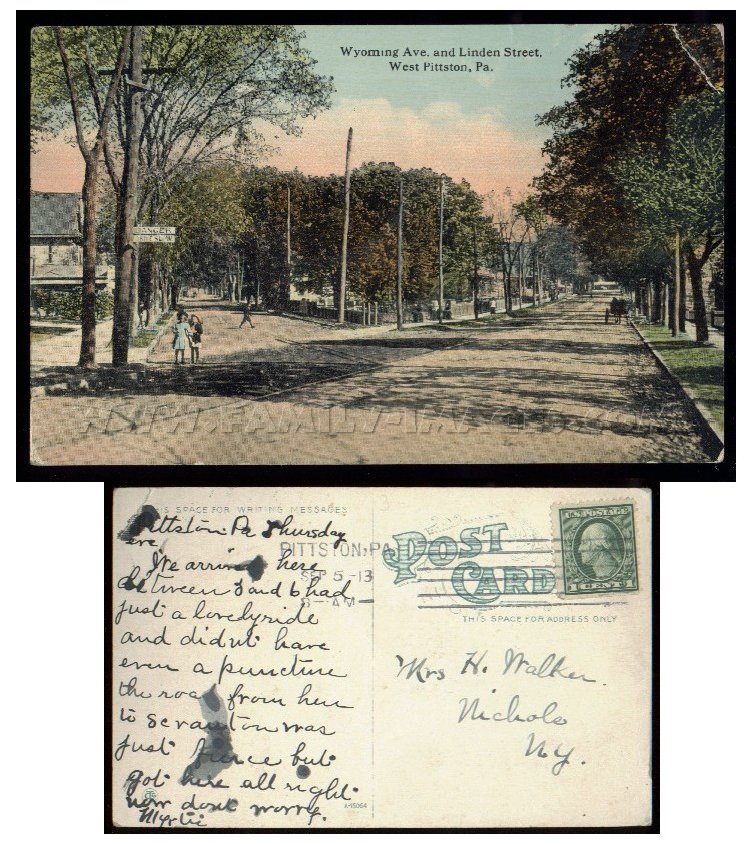 Wyoming Ave. and Linden Street,
West Pittston, Pa.
DANGER
WWW.FAMILY-IMAGES.COM
THIS SPACE FOR WRITING MESSAGES
Pittston. Pa Thursday
eve.
We arrived here
between 5 and 6 had
just a lovely ride
and didnt have
even a puncture
the road from here
to Scranton was
just fierce but
got here all right
now dont worry.
Myrtie
A-15064
PITTSTON, PA
SEP 5-13
AM
POST
CARD
U.S. POSTAGE
1 CENT 1
THIS SPACE FOR ADDRESS ONLY
Mrs H. Walker.
Nichols
N.Y.